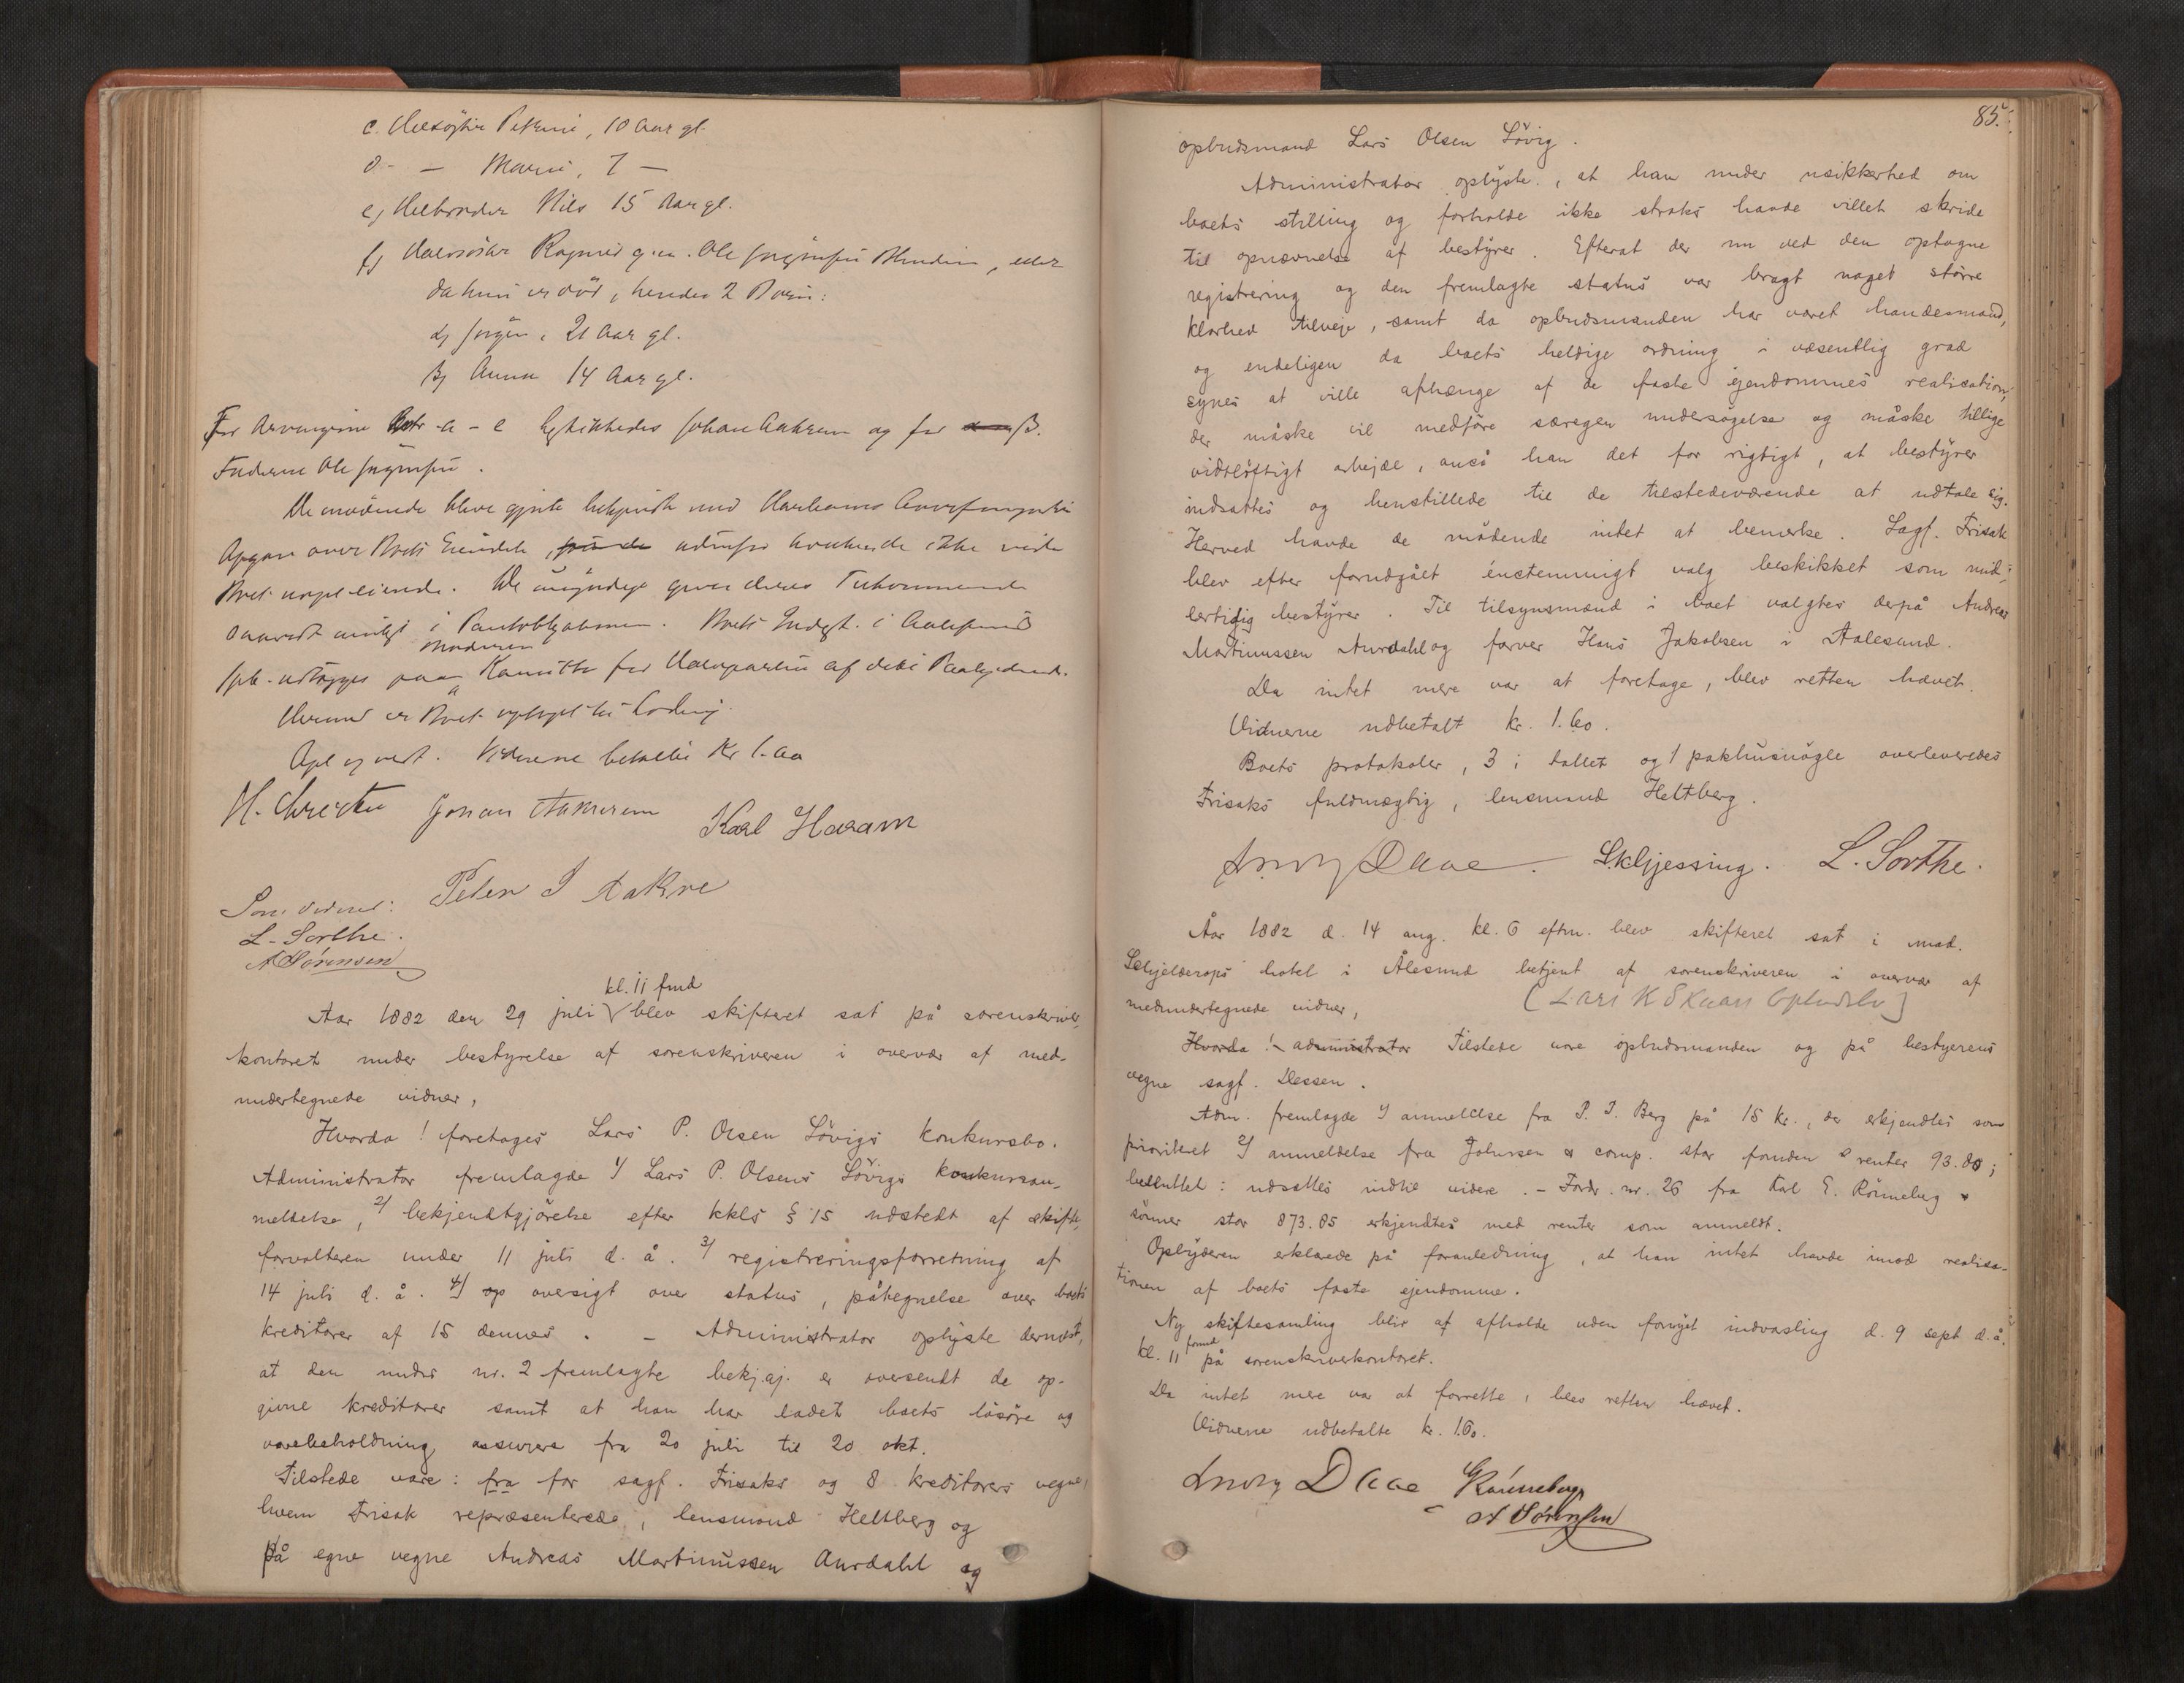 c. Helsøster Petrine, 10 Aar gl.
d - — Marie, 7 —
e, Helbroder Nils 15 Aar gl.
f, Halvsøster Ragnid g. m. Ole, eller
da hun er død, hendes 2 Børn:
α, Jørgen, 21 Aar gl.
β, Anna 14 Aar gl.
For Arvingerne a - e beskikkedes Johan Aakrem og for β.
Faderen Ole.
De mødende bleve gjort bekjendt med
Opgave over Boets Eiendele
Boet. De umyndige deres Tilkommende
i Pantobligationen. Boets
udlægges paa Moderen
Hermed er Boet
Opl. og vedt. Vidnerne betaltes Kr 1.60
H. Johan Aakrem Karl Haram
Som Vidner: Peter J Aakre
L. Sorthe.
A Sørensen
kl. 11 fmd
Aar 1882 den 29 juli blev skifteret sat på sorenskriver-
kontoret under bestyrelse af sorenskriveren i overvær af med-
undertegnede vidner,
Hvorda! foretoges Lars P. Olsen Løvigs konkursbo.
Administrator fremlagde 1/ Lars P. Olsens Løvigs konkursan-
meldelse, 2/ bekjendtgjørelse efter kkls § 15 udstedt af skifte-
forvalteren under 11 juli d. å. 3/ registreringsforretning af
14 juli d. å. 4/ op oversigt over status, påtegnelse over boets
kreditorer af 15 dennes. — Administrator oplyste dernæst,
at den under nr. 2 fremlagte bekj.gj. er oversendt de op-
givne kreditorer samt at han har ladet boets løsøre og
varebeholdning assurere fra 20 juli til 20 okt.
Tilstede vare: fra for sagf. Frisaks og 8 kreditorers vegne,
hvem Frisak repræsenterede, lensmand Heltberg og
på egne vegne Andreas Martinussen Aurdahl og
85.
opbudsmand Lars Olsen Løvig.
Administrator oplyste, at han under usikkerhed om
boets stilling og forholde ikke straks havde villet skride
til opnævnelse af bestyrer. Efterat der nu ved den optagne
registrering og den fremlagte status var bragt noget større
klarhed tilveje, samt da opbudsmanden har været handesmand,
og endeligen da boets heldige ordning i væsentlig grad
synes at ville afhænge af de faste ejendommes realisation,
der måske vil medføre særegen undersøgelse og måske tillige
vidtløftigt arbejde, anså han det for rigtigt, at bestyrer
indsattes og henstillede til de tilstedeværende at udtale sig.
Herved havde de mødende intet at bemerke. Sagf. Frisak
blev efter forudgået énstemmigt valg beskikket som mid-
lertidig bestyrer. Til tilsynsmænd i boet valgtes derpå Andreas
Martinussen Aurdahl og farver Hans Jakobsen i Aalesund.
Da intet mere var at foretage, blev retten hævet.
Vidnerne udbetalt kr. 1.60.
Boets protokoler, 3 i tallet og 1 pakhusnøgle overleveredes
Frisaks fuldmægtig, lensmand Heltberg.
Daae. S. Kljessing. L. Sorthe.
Aar 1882 d. 14 aug. kl. 6 eftm. blev skifteret sat i mad.
Schjelderops hotel i Ålesund betjent af sorenskriveren i overvær af
medundertegnede vidner, (Lars K Skuan Opbudsbo)
Hvorda! administrator Tilstede vare opbudsmanden og på bestyerens
vegne sagf. Dessen.
Adm. fremlagde 1/ anmeldelse fra P. I. Berg på 15 kr., der erkjendtes som
prioriteret 2/ anmeldelse fra Johnsen & comp. stor foruden renter 93.80;
besluttet: udsattes indtil videre. — Fordr. nr. 26 fra Kal E. Rønneberg &
sønner stor 873.85 erkjendtes med renter som anmeldt.
Opbyderen erklærede på foranledning, at han intet havde imod realisa-
tionen af boets faste ejendomme.
Ny skiftesamling blir at afholde uden fornyet indvarsling d. 9 sept d. å.
kl. 11 formd på sorenskriverkontoret.
Da intet mere var at forrette, blev retten hævet.
Vidnerne udbetalte kr. 1.60.
Daae Rønneberg
A Sørensen